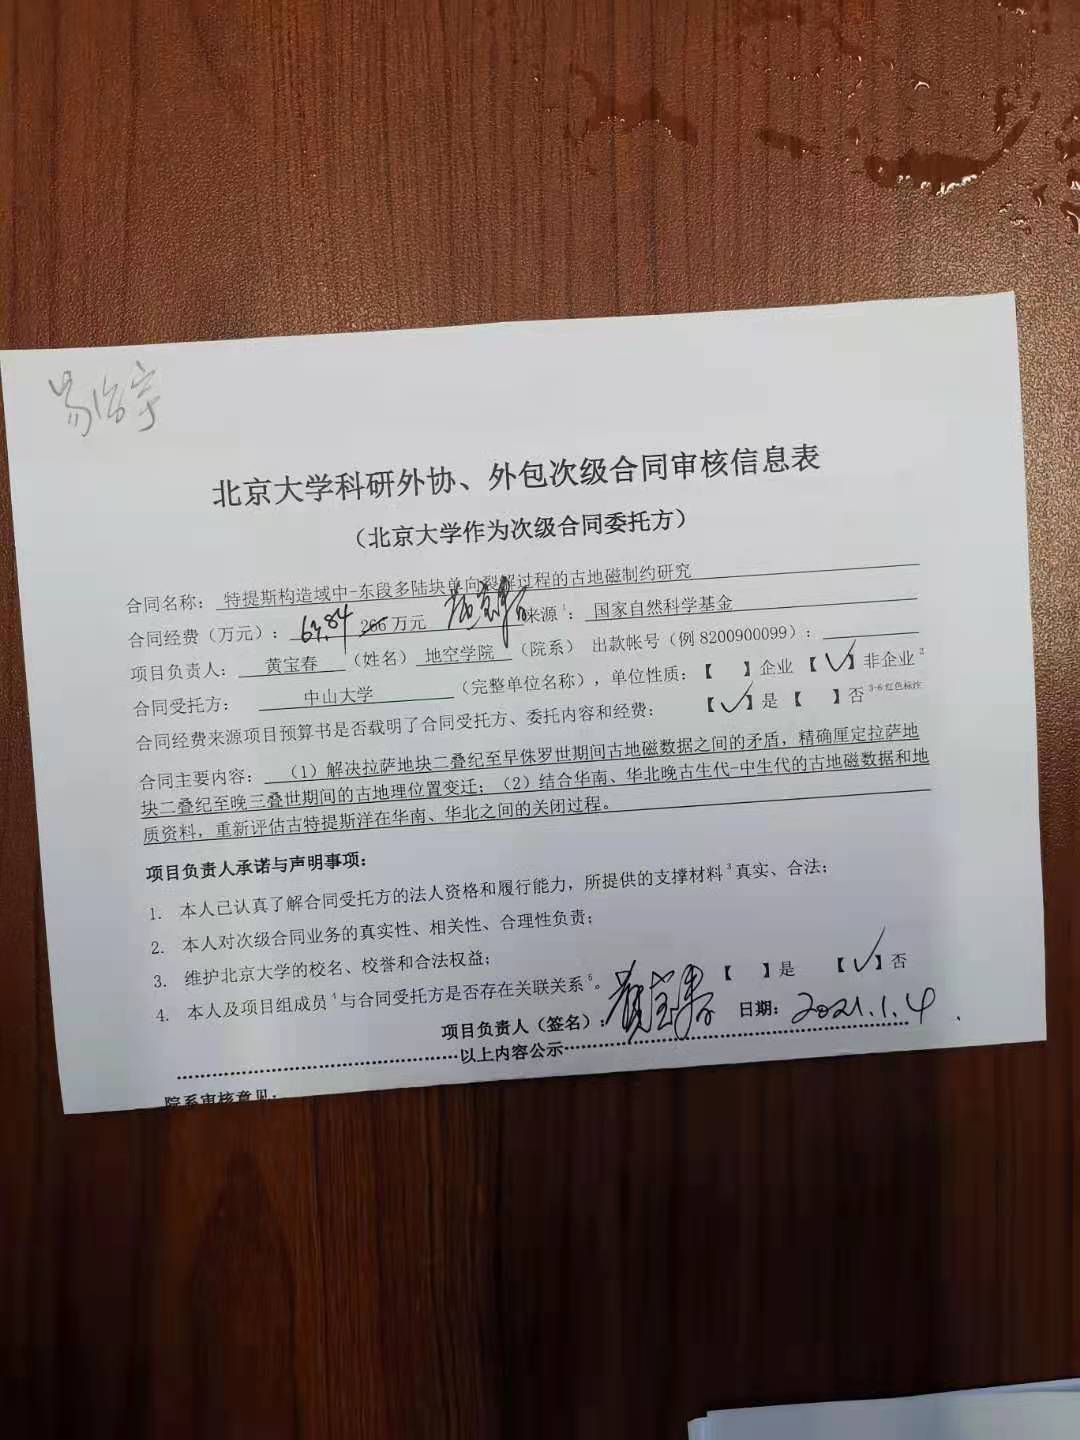 易治宇
北京大学科研外协、外包次级合同审核信息表
（北京大学作为次级合同委托方）
合同名称： 特提斯构造域中-东段多陆块单向裂解过程的古地磁制约研究
合同经费（万元）： 67.84 266 万元 黄宝春 来源1： 国家自然科学基金
项目负责人： 黄宝春 （姓名） 地空学院 （院系） 出款帐号（例 8200900099）：
合同受托方： 中山大学 （完整单位名称），单位性质：【 】企业 【√】非企业2
合同经费来源项目预算书是否载明了合同受托方、委托内容和经费： 【√】是 【 】否 3-6 红色标注
合同主要内容： （1）解决拉萨地块二叠纪至早侏罗世期间古地磁数据之间的矛盾，精确厘定拉萨地
块二叠纪至晚三叠世期间的古地理位置变迁；（2）结合华南、华北晚古生代-中生代的古地磁数据和地
质资料，重新评估古特提斯洋在华南、华北之间的关闭过程。
项目负责人承诺与声明事项：
1. 本人已认真了解合同受托方的法人资格和履行能力，所提供的支撑材料3真实、合法；
2. 本人对次级合同业务的真实性、相关性、合理性负责；
3. 维护北京大学的校名、校誉和合法权益；
4. 本人及项目组成员4与合同受托方是否存在关联关系5。 【 】是 【√】否
项目负责人（签名）：黄宝春 日期：2021.1.4
以上内容公示
院系审核意见：